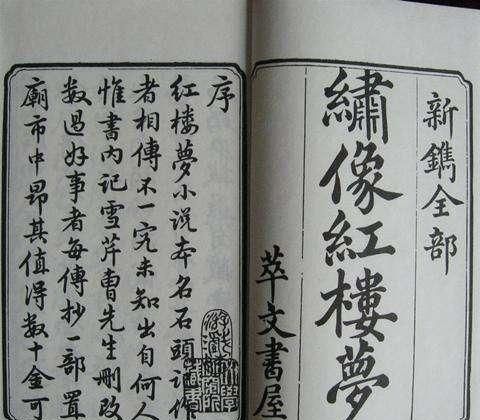 新鐫全部
繡像紅樓夢
萃文書屋
序
紅樓夢小説本名石頭記作
者相傳不一究未知出自何人
惟書内記雪芹曹先生刪改
数過好事者每傳抄一部置
廟市中昂其值得数十金可